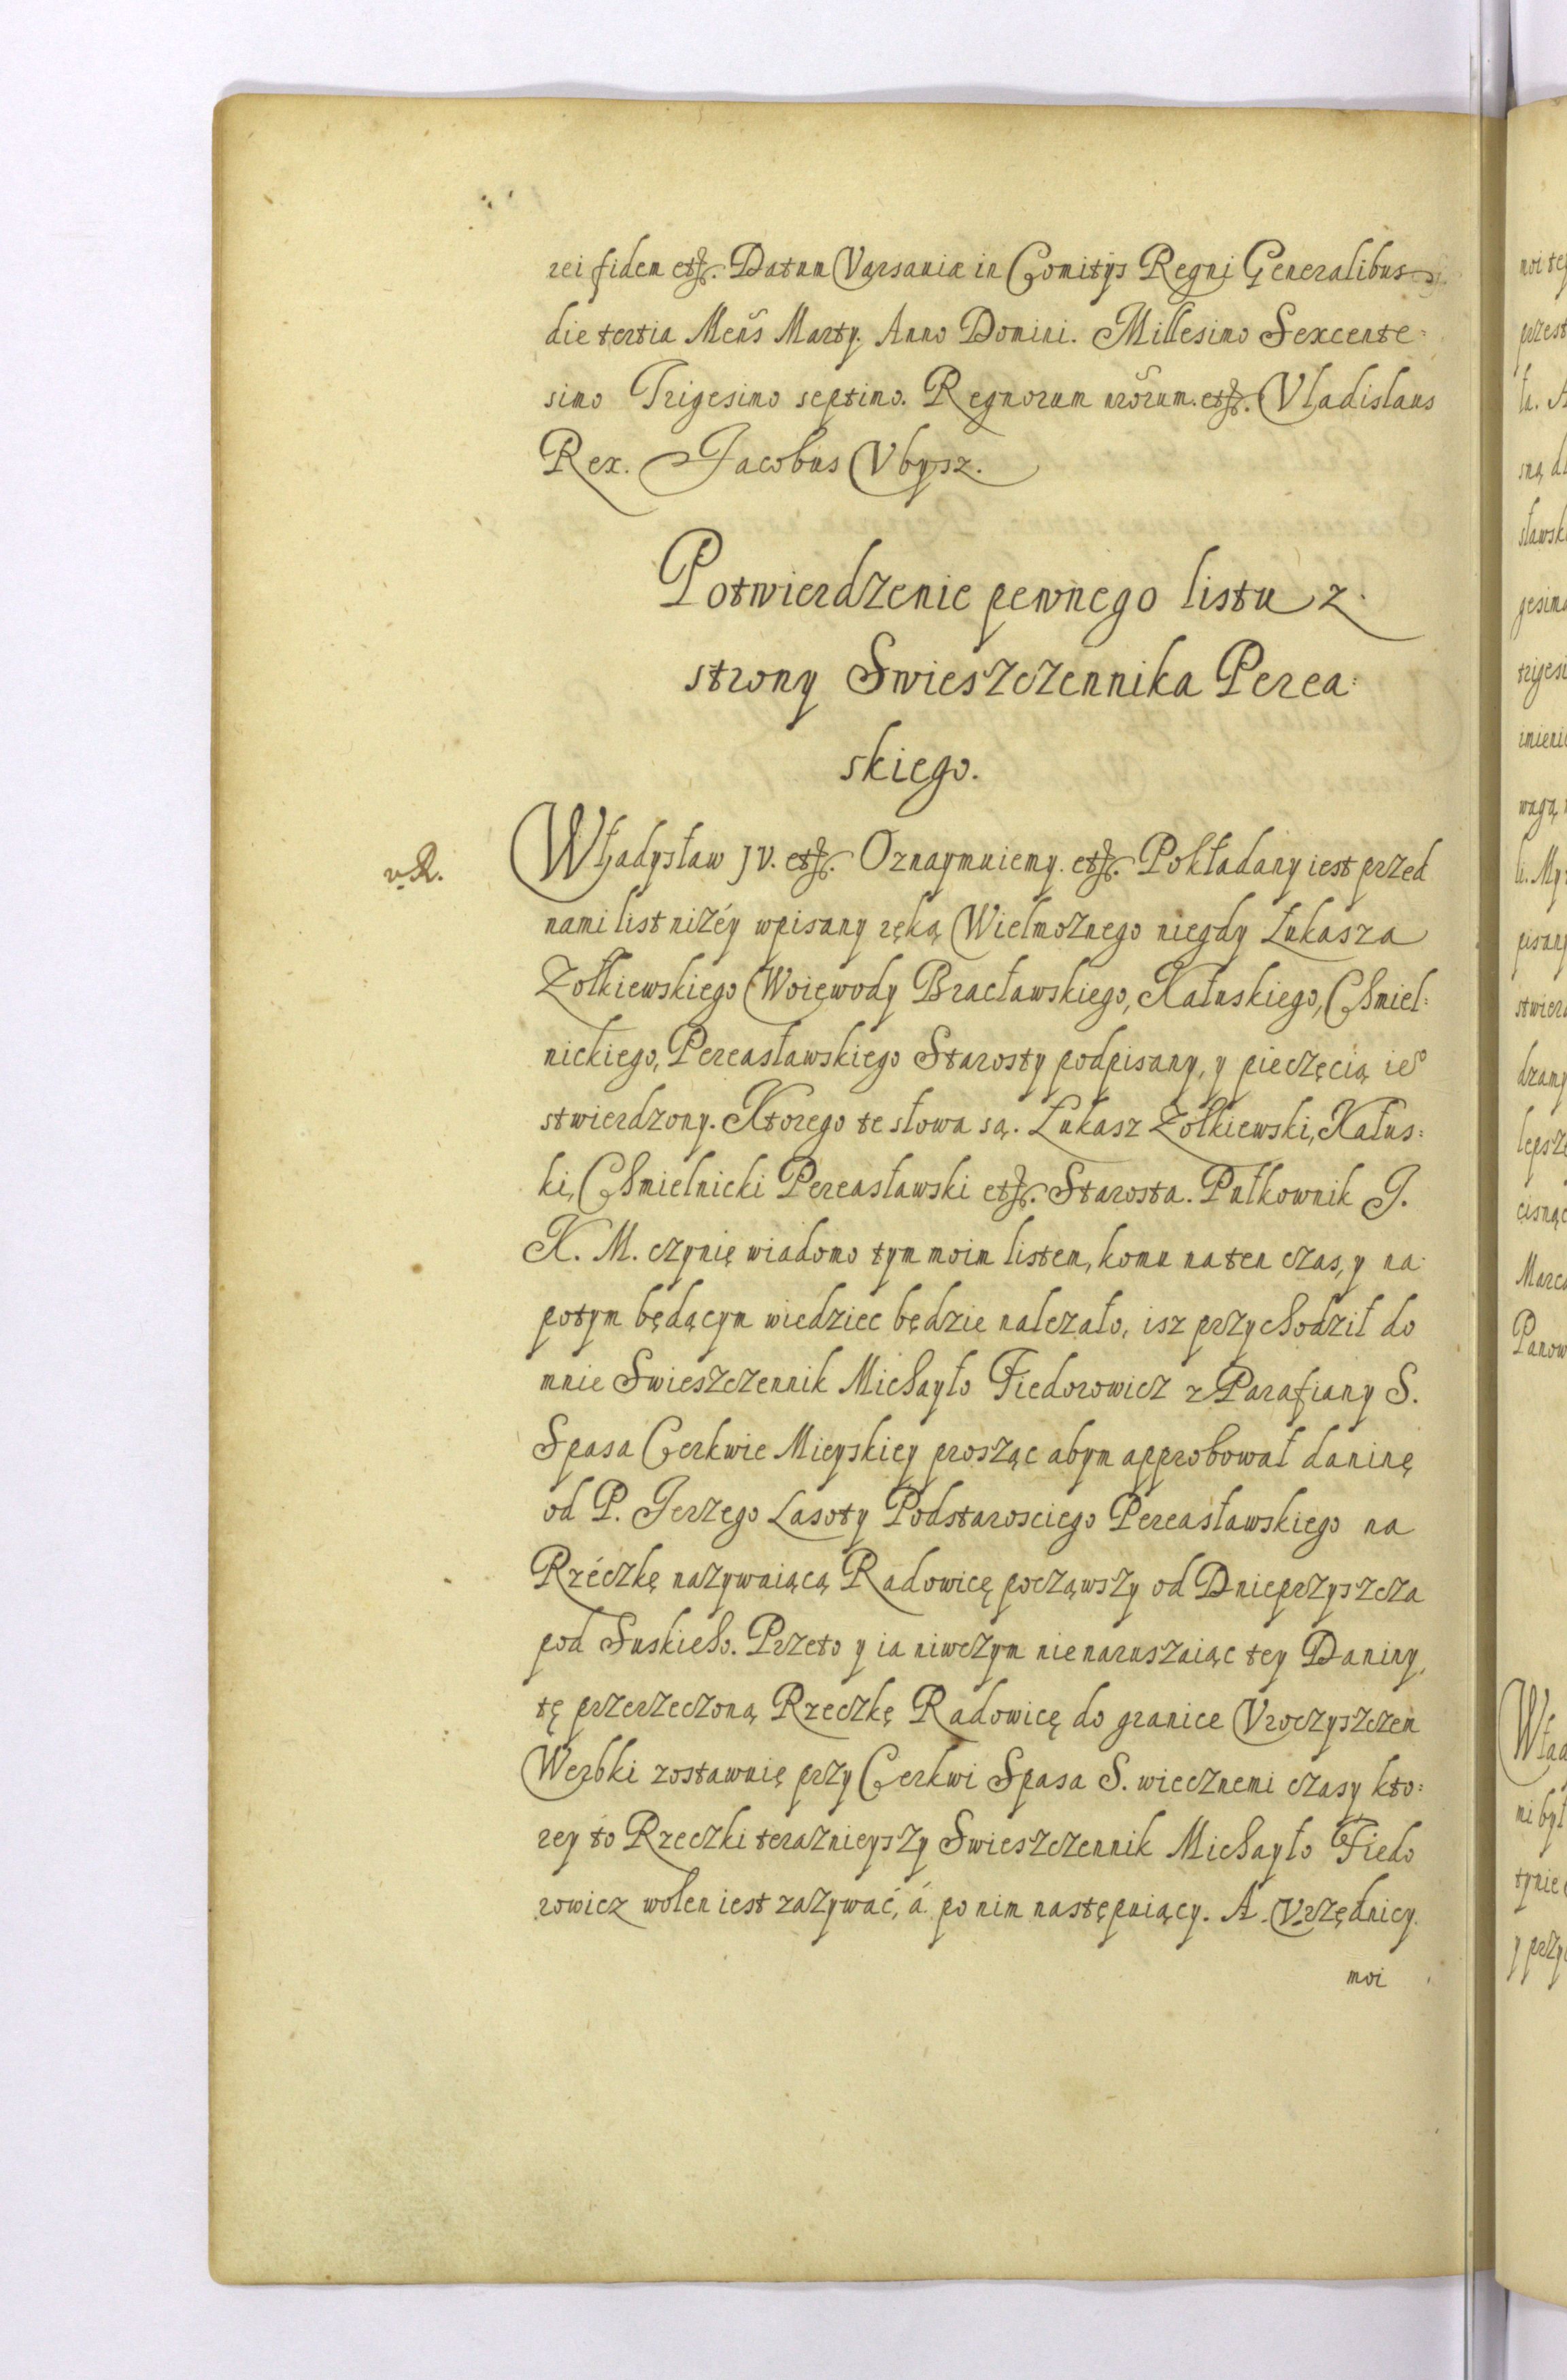 rei fidem etc. Datum Varsauiæ in Comitijs Regni Generalibus
die tertia Meñs Marty. Anno Domini. Millesimo Sexcente:
simo Trigesimo septimo. Regnorum nrõrum. etc. Vladislaus
Rex. Jacobus Vbysz.
Potwierdzenie pewnego listu z
strony Swieszczennika Perea:
skiego.
v. R.
Władysław JV. etc. Oznaymuiemy. etc. Pokładany iest przed
nami list niżéy wpisany ręką Wielmożnego niegdy Łukasza
Zołkiewskiego Woiewody Bracławskiego, Kałuskiego, Chmiel:
nickiego, Pereasławskiego Starosty podpisany, y pieczęcią ieº
stwierdzony. Ktorego te słowa są. Łukasz Zołkiewski, Kałus:
ki, Chmielnicki Pereasławski etc. Starosta. Pułkownik J.
K. M. czynię wiadomo tym moim listem, komu na ten czas, y na
potym będącym wiedziec będzie należało, isz przychodził do
mnie Swieszczennik Michayło Fiedorowicz z Parafiany S.
Spasa Cerkwie Mieyskiey prosząc abym approbował daninę
od P. Jerzego Lasoty Podstarosciego Pereasławskiego na
Rzéczkę nazywaiącą Radowicę począwszy od Dnieprzyszcza
pod Suskieho. Przeto y ia niwczym nie naruszaiąc tey Daniny,
tę przerzeczoną Rzeczkę Radowicę do granice Vroczyszczem
Werbki zostawuię przy Cerkwi Spasa S. wiecznemi czasy kto:
rey to Rzeczki teraznieyszy Swieszczennik Michayło Fiedo
rowicz wolen iest zażywać, á po nim następuiący. A Vrzędnicy
moi